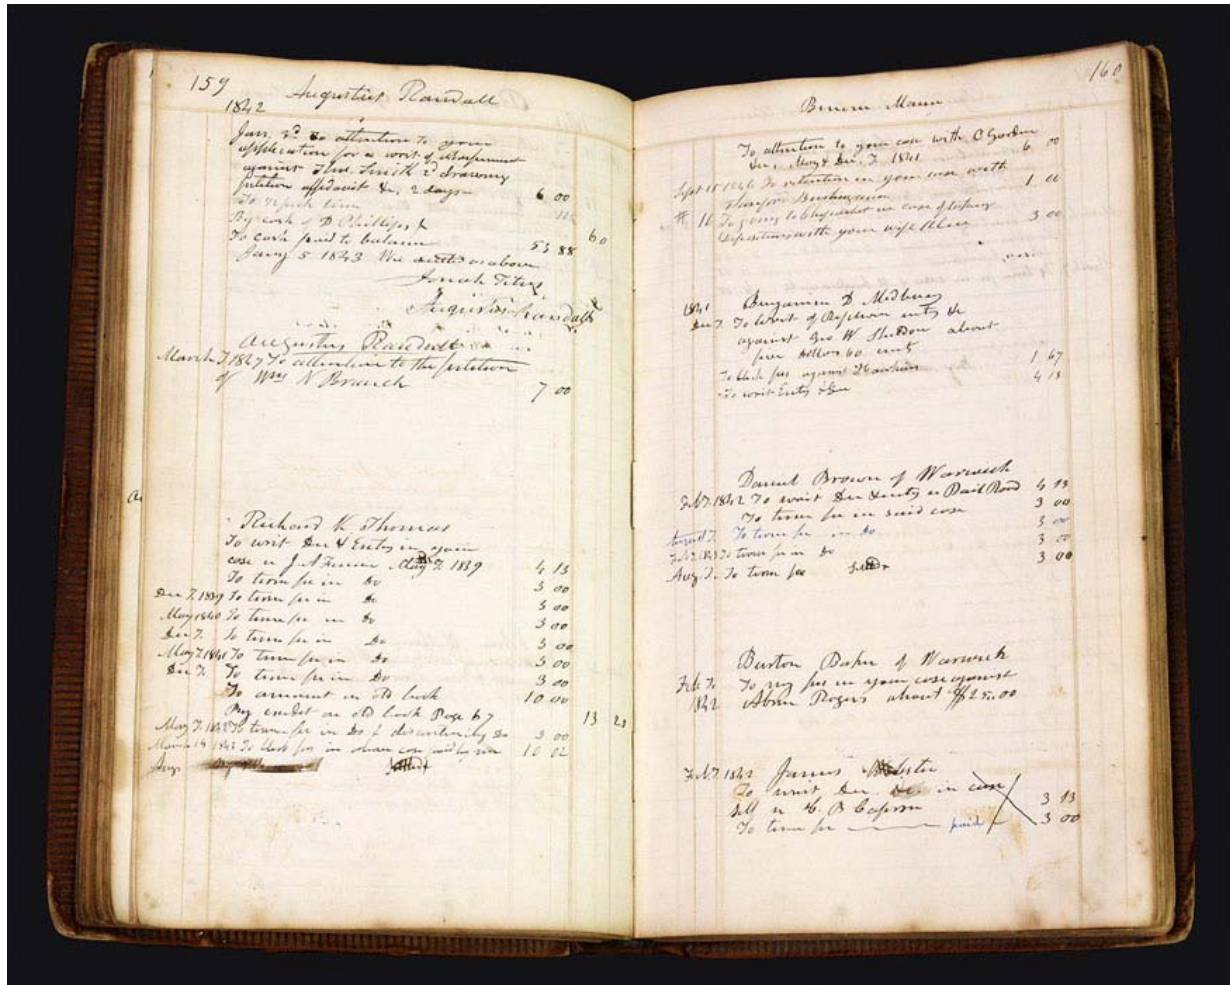 159
Augustus Randall
1842
Jany. 3d To attention to your
application for a writ of
against Thos. Smith 2d drawing
petition affidavit &c, 2 days 6 00
To
By cash of D Phillips & 60
To cash paid to balance 53 88
Jany 5. 1843 We settled as above
Jonah Titus
Augustus Randall
Augustus Randall
March T. 1847 To attention to the petition
of Wm N Branch 7 00
Richard K Thomas
To writ Decr & Entry in your
case v J. A Turner May T. 1839 4 13
To term fee in Do 3 00
Dec T. 1839 To term fee in Do 3 00
May 1840 To term fee in Do 3 00
Dec T. To term fee in Do 3 00
May T. 1841 To term fee in Do 3 00
Dec T. To term fee in Do 3 00
To amount on old book 10 00
By credit on old book Page 67 13 23
May T. To term fee in Do & discontinuing Do 3 00
March 1843 To clerk fees in case paid by me 10 02
Aug. Settled
160
Benoni Mann
To attention to your case with C Gorden
Dec, May & Dec. T. 1841 6 00
Sept 15 1846 To attention in your case with
1 00
16 To going to Chepachet in case of taking
depositions with your wife 3 00
over
1841 Benjamin D Medbury
Dec T. To writ of Replevin entry &c
against Geo W Sheldon about
four dollars 60 cents
To clerk fees against Hawkins 1 67
To writ Entry & Dec 4 13
Daniel Brown of Warwick
Feb T. 1842 To writ Dec & entry v Rail Road 4 13
To term fee in said case 3 00
August T. To term fee in Do 3 00
Feb T. 1843 To term fee in Do 3 00
Aug. T. To term fee Settled 3 00
Burton Baker of Warwick
Feb T. To my fee in your case against
1842 Abner Rogers about $25.00
Feb T. 1842 James
To writ Dec. in case
self v C. B Capron 3 13
To term fee paid 3 00